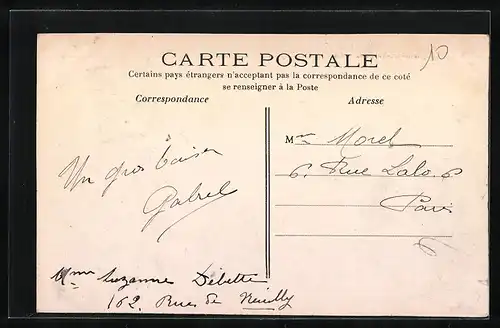 CARTE POSTALE
Certains pays étrangers n'acceptant pas la correspondance de ce coté
se renseigner à la Poste
Correspondance
Adresse
10
Un gros baiser
Gabriel
Mr Morel
6. Rue Lalo. 6
Paris
Mme Suzanne Debette
162. Rue de Neuilly